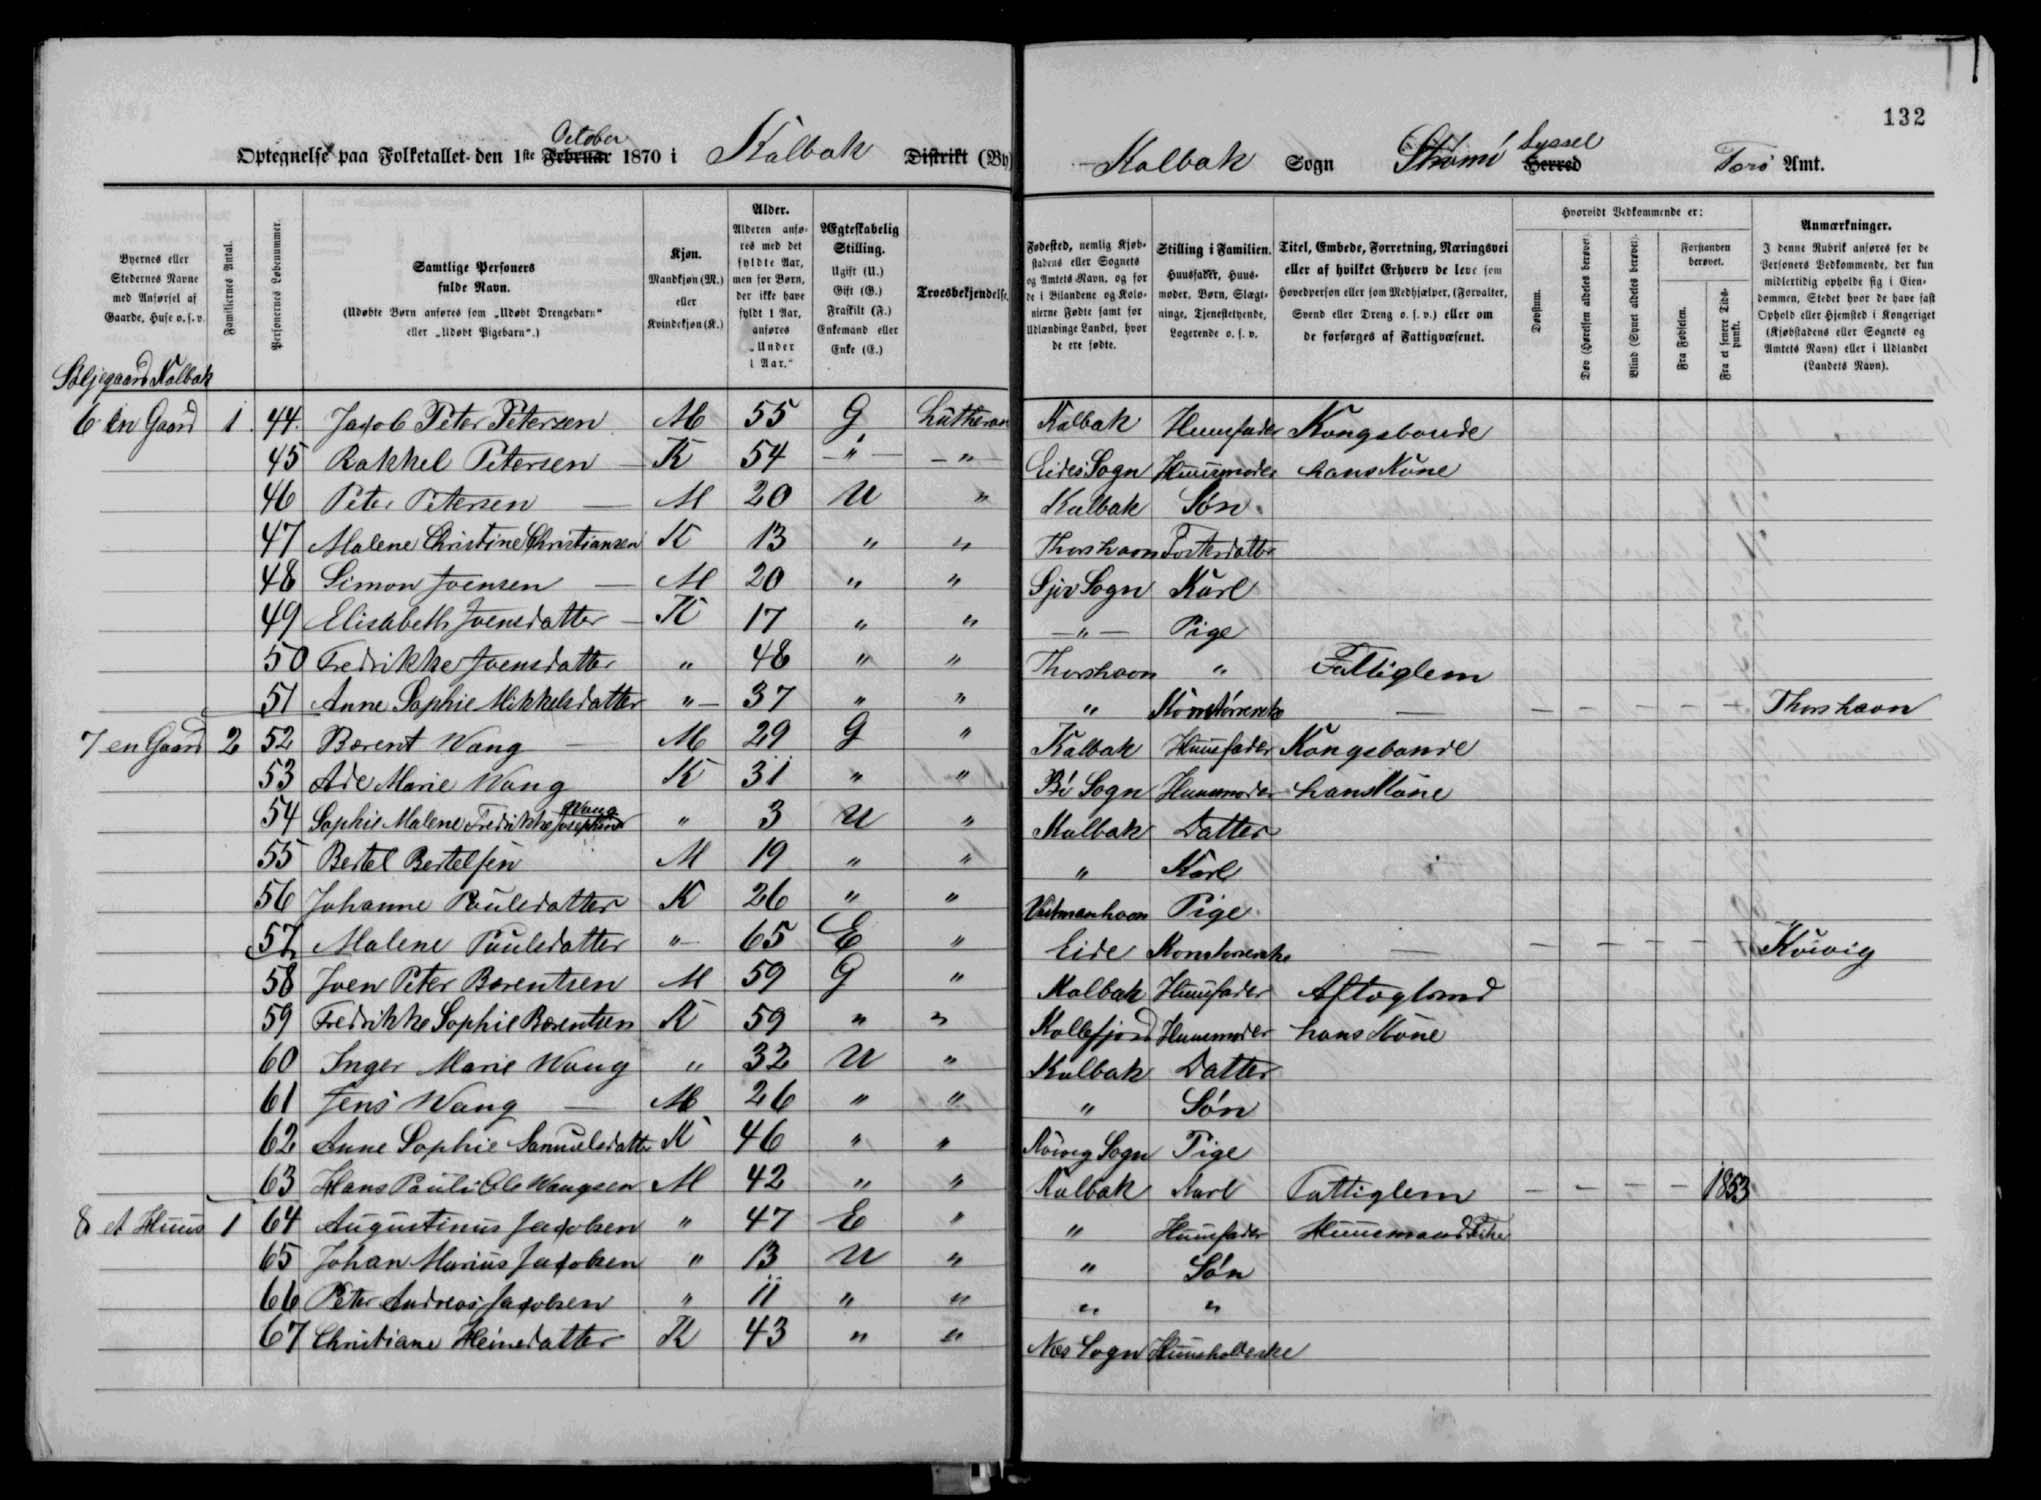 132
Optegnelse paa Folketallet den 1ste Februar October 1870 i Kalbak Distrikt (By)
Kalbak Sogn Strømö Herred Syssel Færö Amt.
Byernes eller Stedernes Navne med Anførsel af Gaarde, Huse o. s. v.
Familiernes Antal.
Personernes Løbenummer.
Samtlige Personers fulde Navn.
(Udøbte Børn anføres som „Udøbt Drengebarn“ eller „Udøbt Pigebarn“.)
Kjøn.
Mandkjøn (M.) eller Kvindekjøn (K.)
Alder.
Alderen anføres med det fyldte Aar, men for Børn, der ikke have fyldt 1 Aar, anføres „Under 1 Aar.“
Ægteskabelig Stilling.
Ugift (U.)
Gift (G.)
Fraskilt (F.)
Enkemand eller Enke (E.)
Troesbekjendelse.
Fødested, nemlig Kjøbstadens eller Sognets og Amtets Navn, og for de i Bilandene og Kolonierne Fødte samt for Udlændinge Landet, hvor de ere fødte.
Stilling i Familien.
Huusfader, Huusmoder, Børn, Slægtninge, Tjenestetyende, Logerende o. s. v.
Titel, Embede, Forretning, Næringsvei eller af hvilket Erhverv de leve som Hovedperson eller som Medhjælper, (Forvalter, Svend eller Dreng o. s. v.) eller om de forsørges af Fattigvæsenet.
Hvorvidt Vedkommende er:
Døvstum.
Døv (Hørelsen aldeles berøvet).
Blind (Synet aldeles berøvet).
Forstanden berøvet.
Fra Fødselen.
Fra et senere Tidspunkt.
Anmærkninger.
I denne Rubrik anføres for de Personers Vedkommende, der kun midlertidig opholde sig i Eiendommen, Stedet hvor de have fast Ophold eller Hjemsted i Kongeriget (Kjøbstadens eller Sognets og Amtets Navn) eller i Udlandet (Landets Navn).
Kalbak
6 en Gaard 1 44. Jacob Peter Petersen M 55 G Lutheran Kalbak Huusfader Kongsbonde
45 Rakkel Petersen — K 54 — " — — " — Eides Sogn Huusmoder hans Kone
46 Peter Petersen — M 20 U " Kalbak Søn
47 Malene Christine Christiansen K 13 " " Thorshavn Fosterdatter
48 Simon Joensen — M 20 " " Sjov Sogn Karl
49 Elisabeth Joensdatter — K 17 " " — " — Pige
50 Fredrikke Joensdatter " 48 " " Thorshavn " Fattiglem
51 Anne Sophie Mikkelsdatter " — 37 " " " — — — — — — Thorshavn
7 en Gaard 2 52 Bærent Wang — M 29 G " Kalbak Huusfader Kongsbonde
53 Ade Marie Wang K 31 " " Bö Sogn Huusmoder hans Kone
54 Sophie Malene Fredrikke Josephine Wang " 3 U " Kalbak Datter
55 Bertel Bertelsen M 19 " " " Karl
56 Johanne Poulsdatter K 26 " " Vestmanhavn Pige
57 Malene Poulsdatter " — 65 E " Eide — — — — — — Kvivig
58 Joen Peter Bærentsen M 59 G " Kalbak Huusfader Aftægtsmd
59 Fredrikke Sophie Bærentsen K 59 " " Kollefjord Huusmoder hans Kone
60 Inger Marie Wang " 32 U " Kalbak Datter
61 Jens Wang — M 26 " " " Søn
62 Anne Sophie Samuelsdatter K 46 " " Kvivig Sogn Pige
63 Hans Pauli Ole Wangsen M 42 " " Kalbak Karl Fattiglem — — — — 1853
8 et Huus 1 64 Augustinus Jacobsen " 47 E " " Huusfader Huusmand
65 Johan Marius Jacobsen " 13 U " " Søn
66 Peter Andreas Jacobsen " 11 " " " "
67 Christiane Heinedatter K 43 " " Næs Sogn Huusholderske